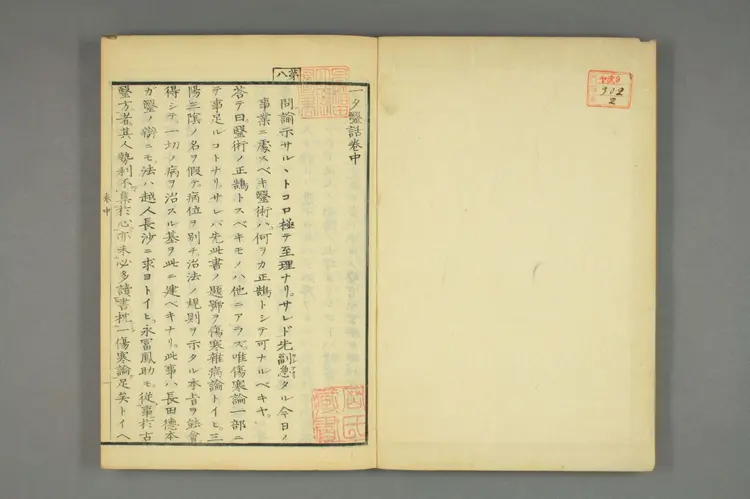 一夕醫話卷中
問諭示サル丶トコロ極テ至理ナリ。サレド先副急タル今日ノ
事業ニ處スベキ醫術ハ、何ヲカ正鵠トシテ可ナルベキヤ。
答テ曰。醫術ノ正鵠トスベキモノハ他ニアラズ。唯傷寒論一部ニ
テ事足ルコトナリ。サレバ先此書ノ題號ヲ傷寒雜病論トイヒ。三
陽三陰ノ名ヲ假テ。病位ヲ別チ。治法ノ規則ヲ示タル本旨ヲ能會
得シテ。一切ノ病ヲ治スル基ヲ此ニ建ベキナリ。此事ハ長田德本
ガ醫ノ辯ニモ。法ハ越人長沙ニ求ヨトイヒ。永富鳳助モ。從事於古
醫方者其人勢利不集於心。亦未必多讀書。枕一傷寒論足矣トイヘ
卷中
902
2